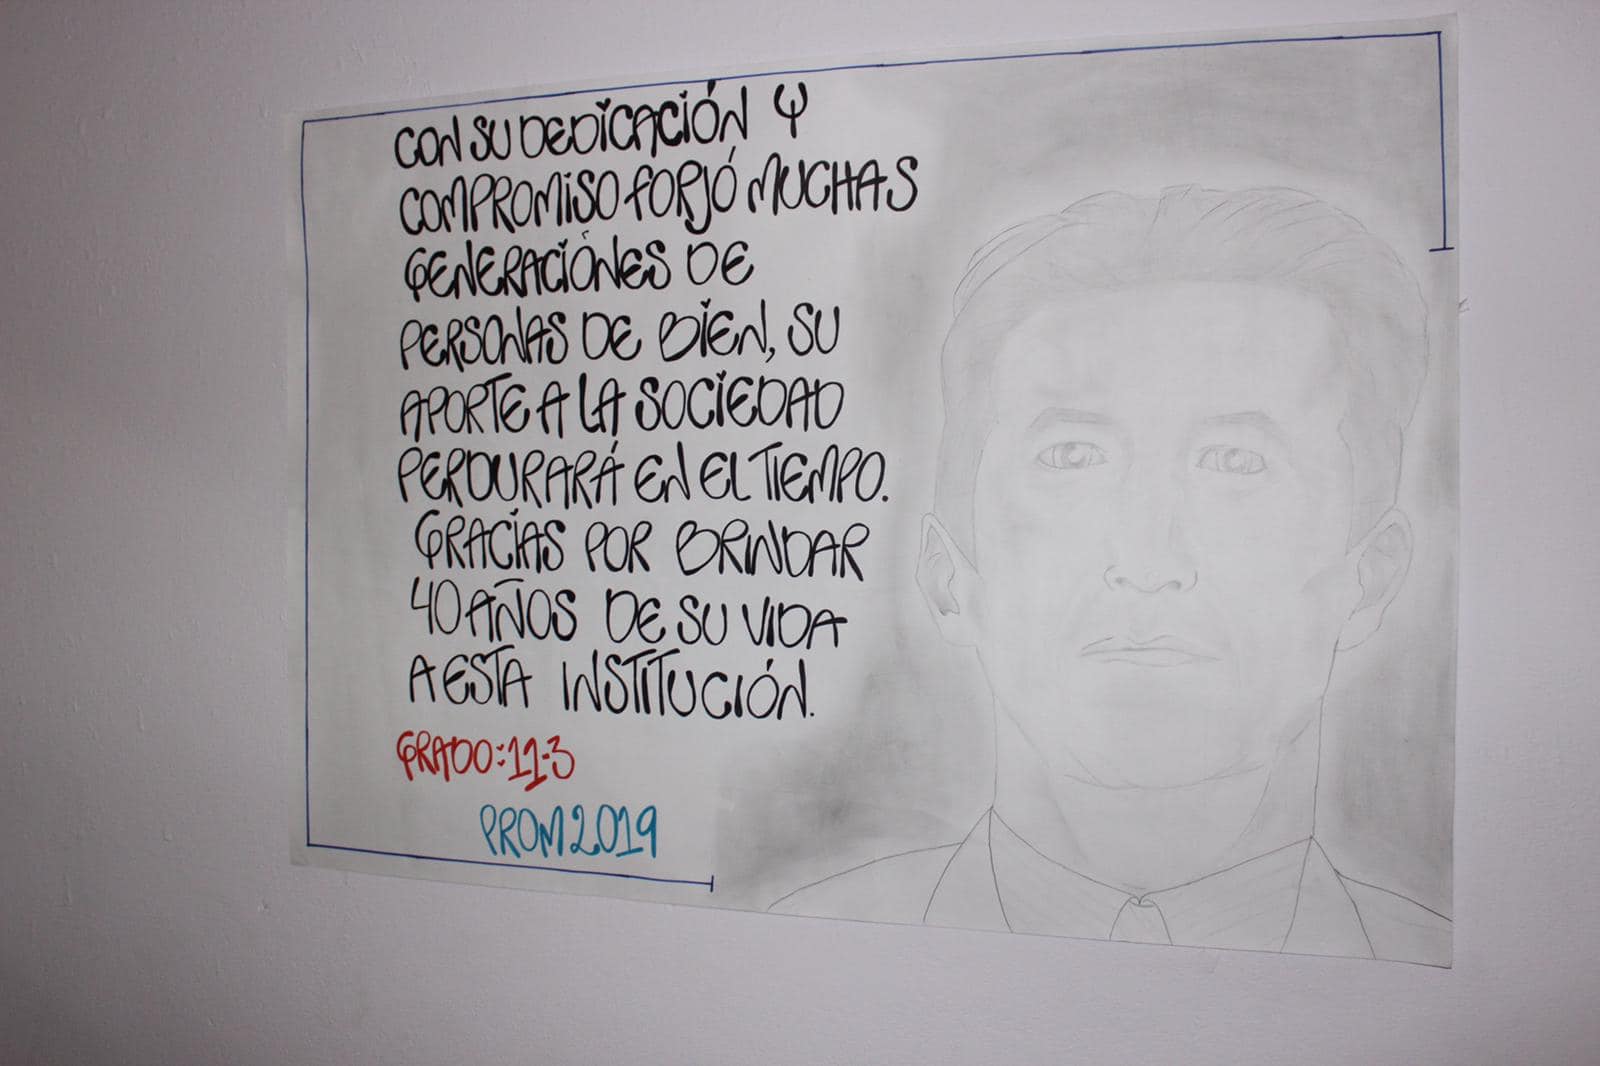 CON SU DEDICACIÓN Y
COMPROMISO FORJÓ MUCHAS
GENERACIÓNES DE
PERSONAS DE BIEN, SU
APORTE A LA SOCIEDAD
PERDURARÁ EN EL TIEMPO.
GRACIAS POR BRINDAR
40 AÑOS DE SU VIDA
A ESTA INSTITUCIÓN.
GRADO:11-3
PROM 2019